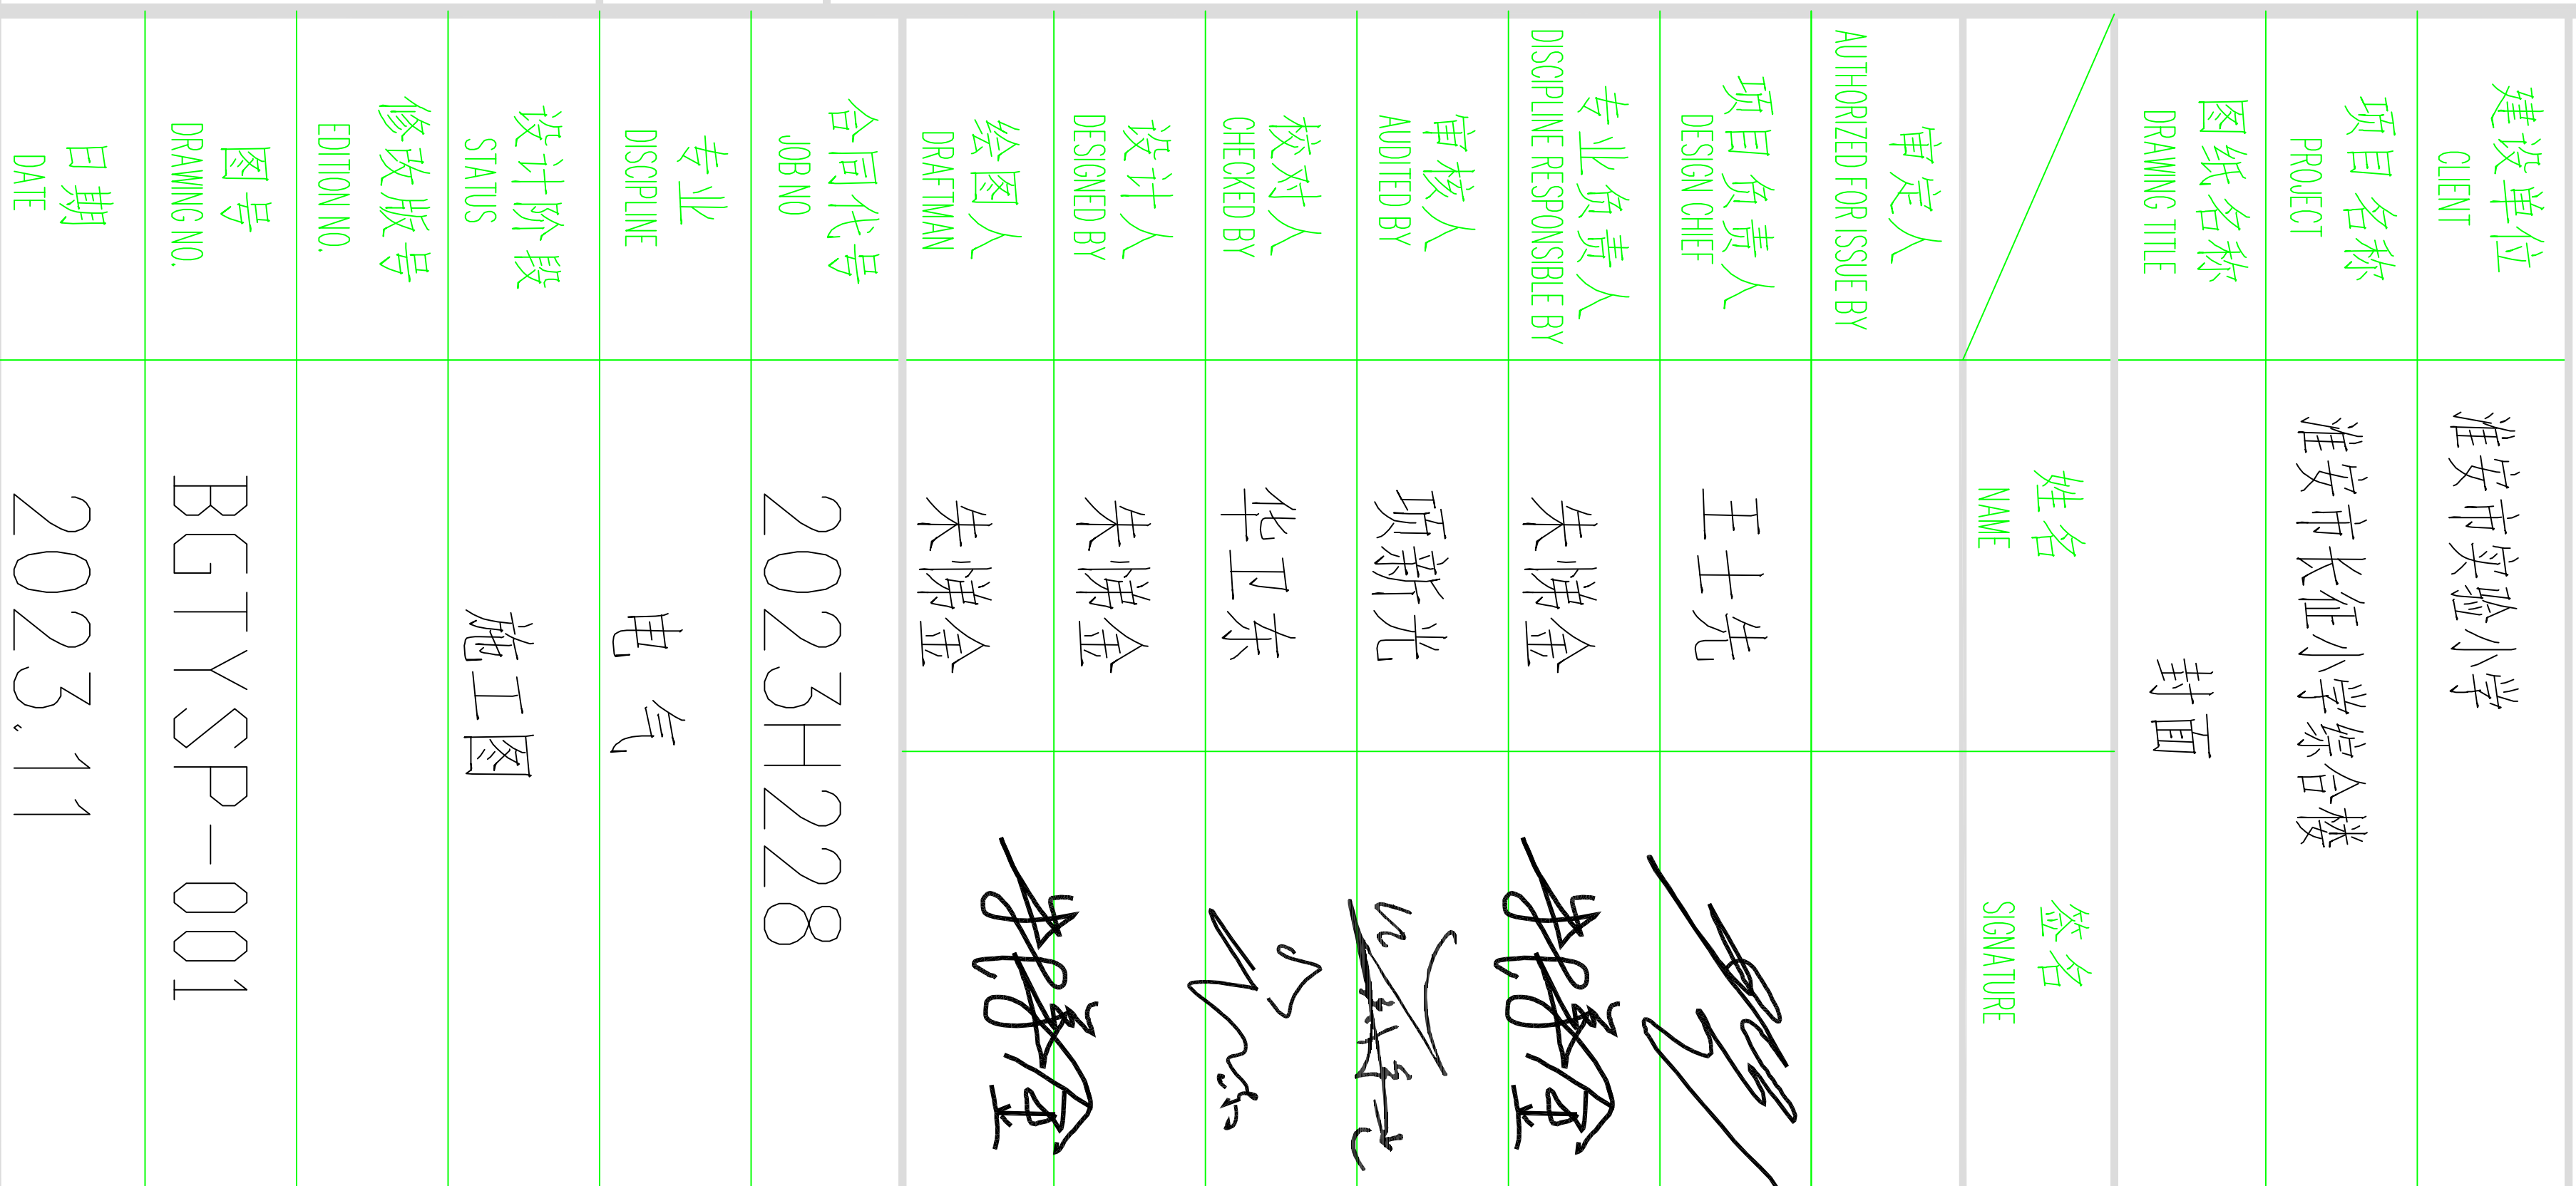 建设单位
CLIENT
淮安市实验小学
项目名称
PROJECT
淮安市长征小学综合楼
图纸名称
DRAWING TITLE
封面
姓名
NAME
签名
SIGNATURE
审定人
AUTHORIZED FOR ISSUE BY
项目负责人
DESIGN CHIEF
王士先
专业负责人
DISCIPLINE RESPONSIBLE BY
朱慎金
审核人
AUDITED BY
项新光
校对人
CHECKED BY
华卫东
设计人
DESIGNED BY
朱慎金
绘图人
DRAFTMAN
朱慎金
合同代号
JOB NO
2023H228
专业
DISCIPLINE
电 气
设计阶段
STATUS
施工图
修改版号
EDITION NO.
图号
DRAWING NO.
BGTYSP-001
日期
DATE
2023.11